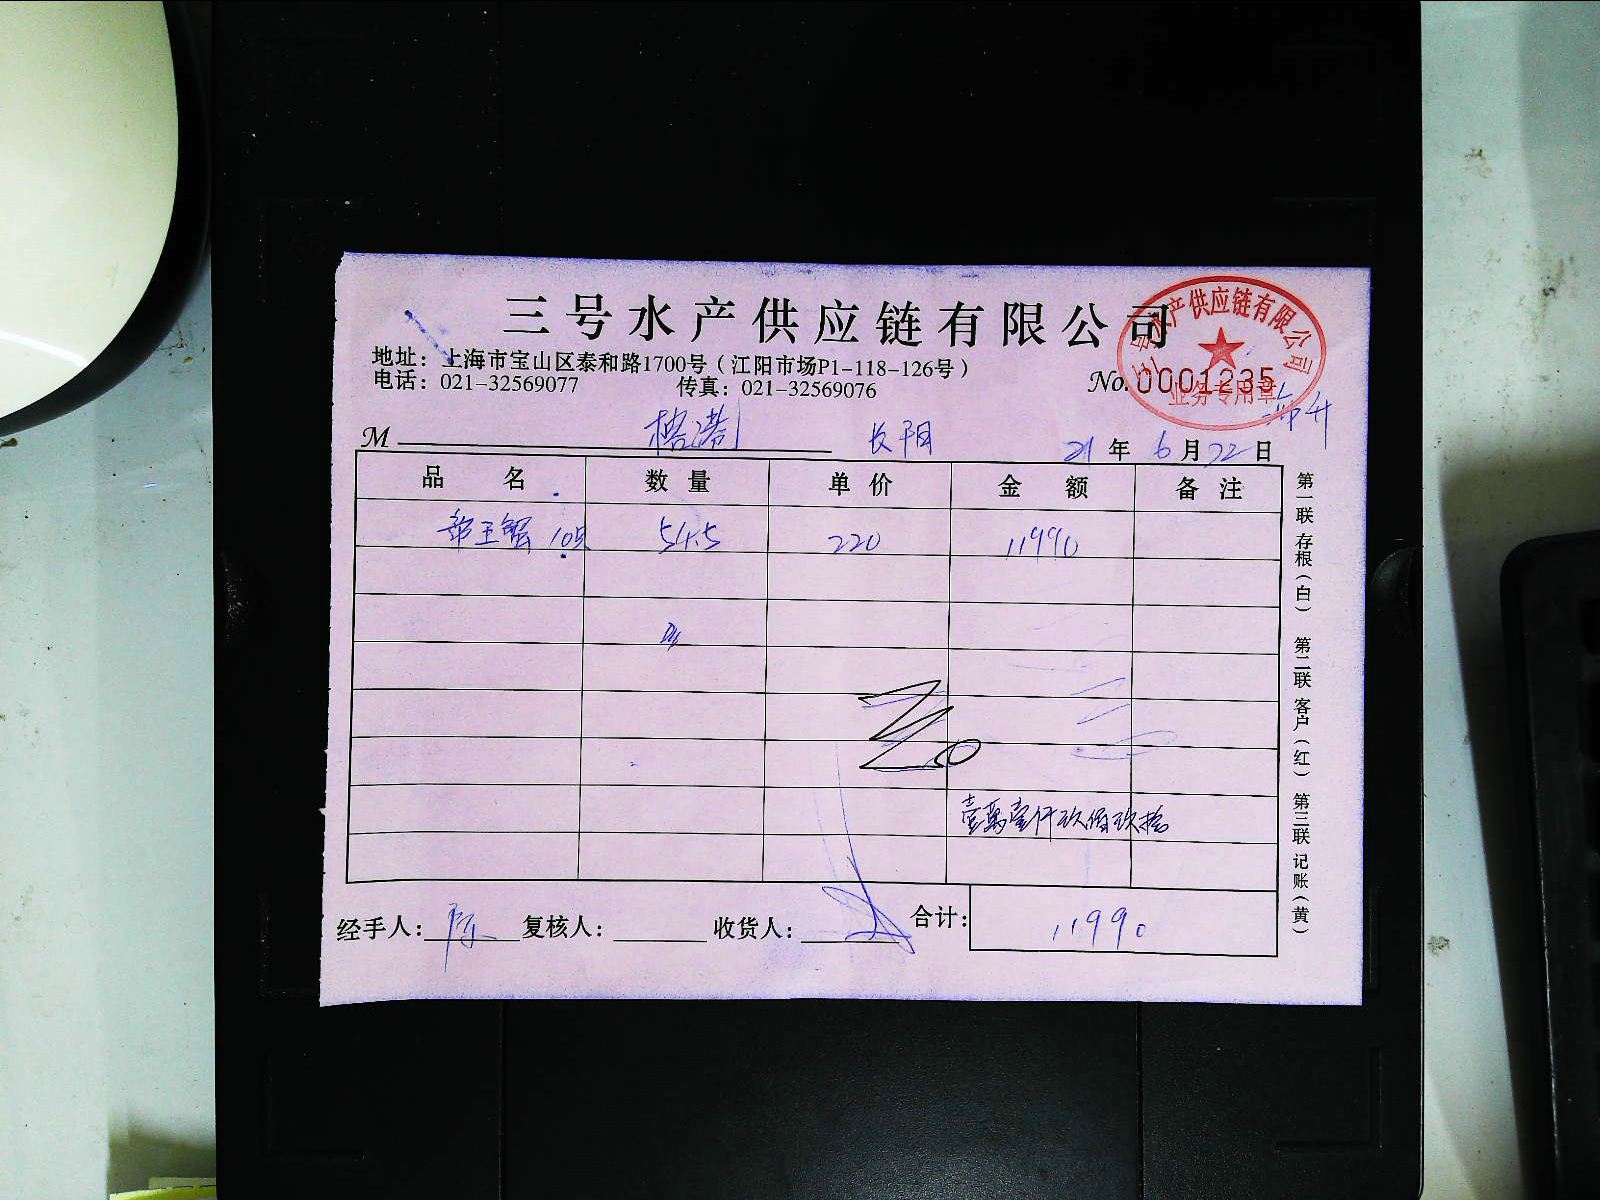 三号水产供应链有限公司
地址：上海市宝山区泰和路1700号（江阳市场P1-118-126号）
电话：021-32569077 传真：021-32569076 No.0001235
三号水产供应链有限公司
业务专用章
M 长阳 21年6月22日
品名 数量 单价 金额 备注
帝王蟹 10只 54.5 220 11990
壹萬壹仟玖佰玖拾
经手人：陈 复核人： 收货人： 合计：11990
第一联 存根（白） 第二联 客户（红） 第三联 记账（黄）